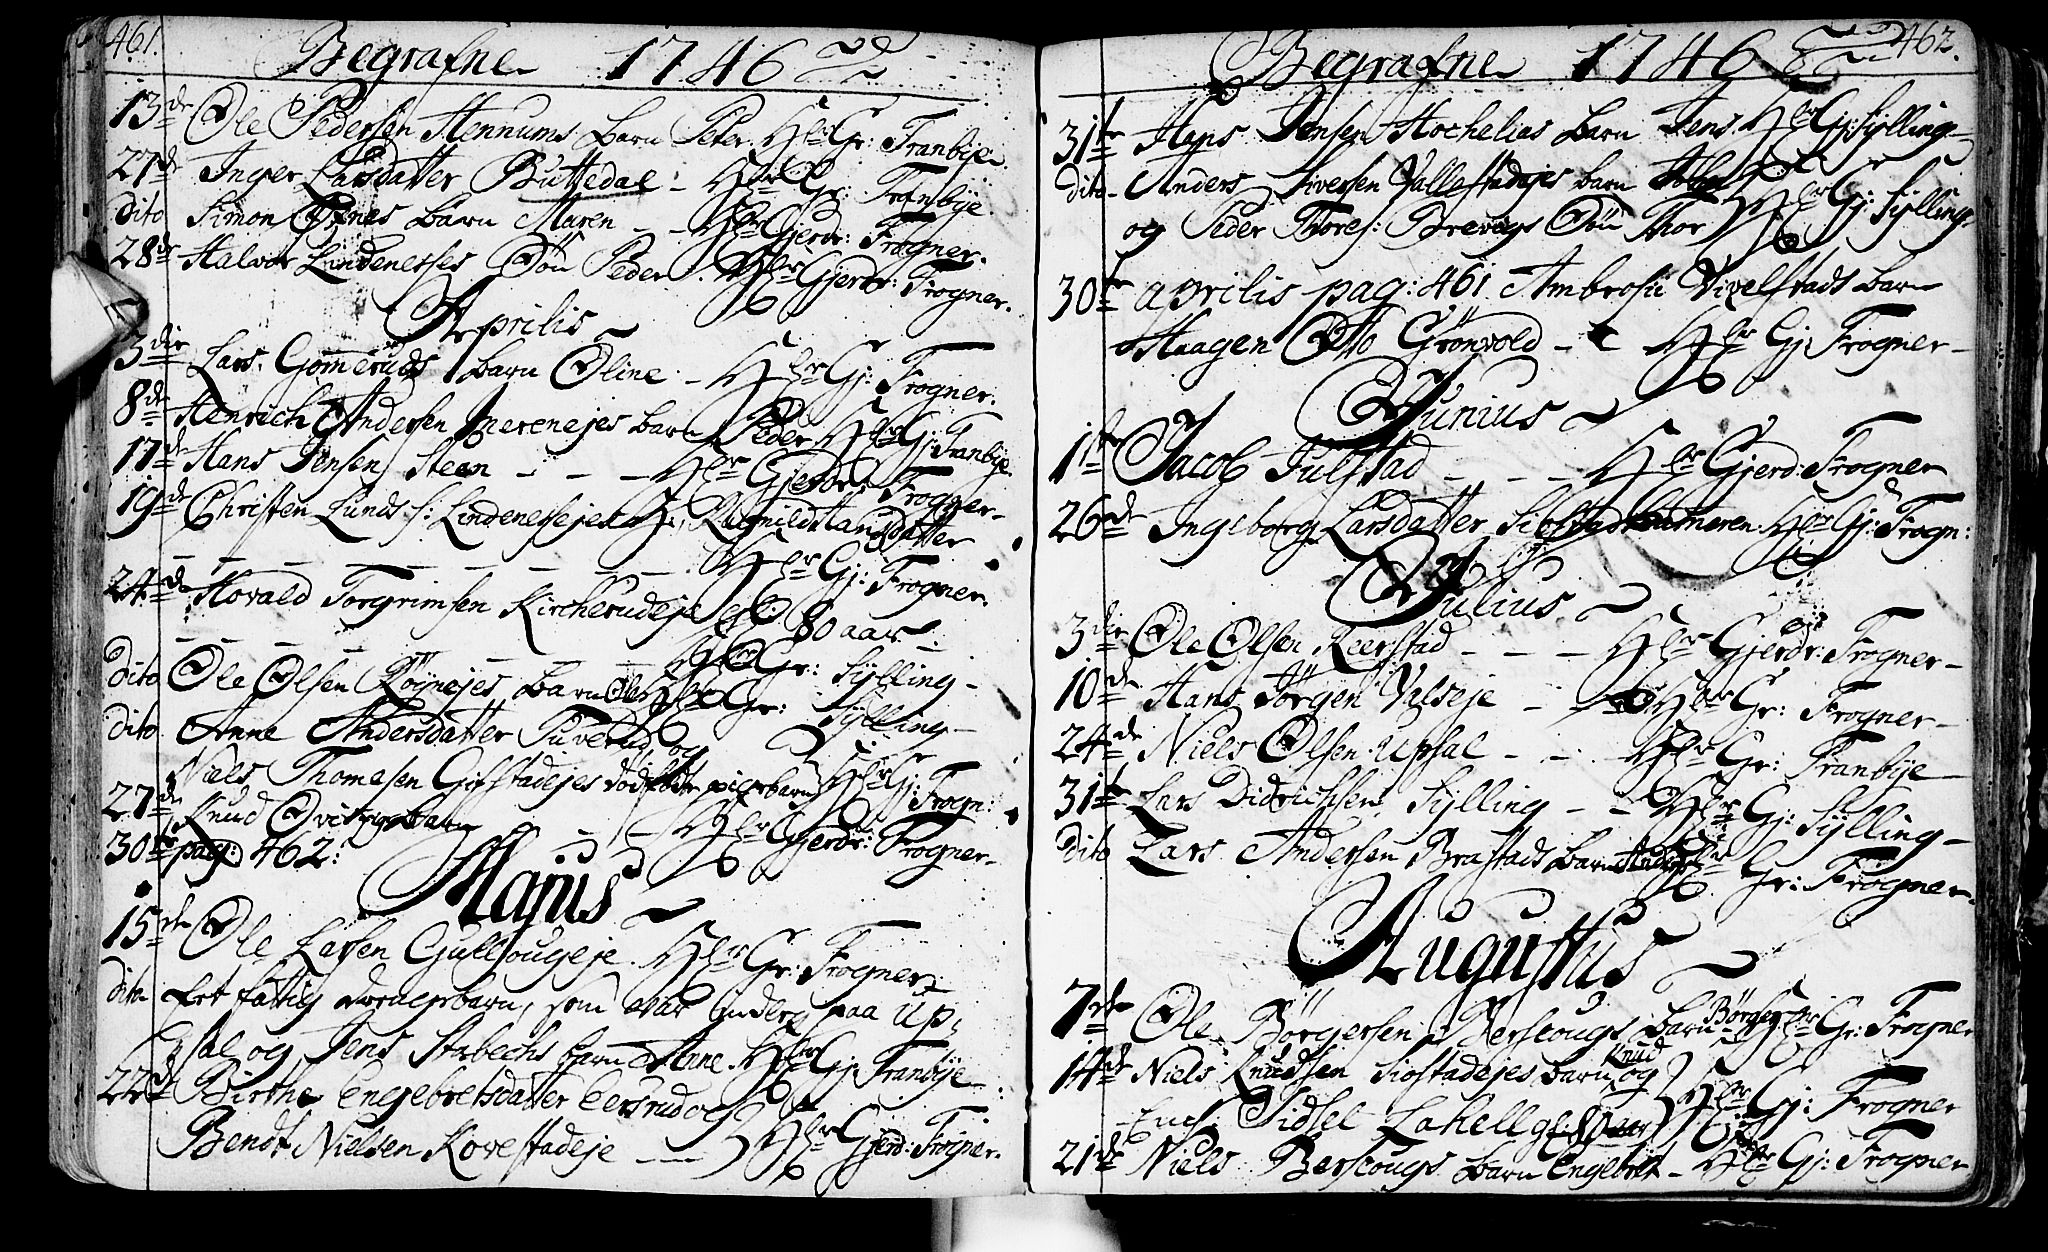 461.
Begrafne 1746
13de Ole Pedersen Hennums barn Peter. Hlr Gr: Tranbÿe
27de Inger Larsdatter Buttedal - Hlr Gr: Tranbÿe.
dito Simon Ofnes barn Maren - - Hlr Gjerdr: Frogner.
28de Halvor Lindenesses Søn Peder. Hlr Gjerdr: Frogner.
Aprilis
3die Lars Gomeruds barn Oline - Hlr Gj: Frogner.
8de Henrich Andersen barn Peder Hlr Gj: Tranbÿe
17de Hans Jensen Steen - - - Hlr Gjerdr: Frogner-
19de Christen Lunds Ragnild Hansdatter
- - - - - - - Hlr Gj: Frogner.
24de Hovald Torgrimsen Kircherudeje gl: 80 aar
dito Ole Olsen barn Ole Hlr Gr: Sÿlling-
dito Anne Andersdatter Tuverud Hlr Gr: Sÿlling-
27de Niels Thomesen Gifstadejes dødfødte pigebarn og Hlr Gj: Frogn:
Knud barn - - Hlr Gjerdr: Frogner-
30te pag: 462:
Majus
15de Ole Larsen Gullhougeje. Hlr Gr: Frogner
dito- Et fattig barn, som var underv paa Up-
sal og Jens Starbechs barn Anne. Hlr Gj: Tranbÿe-
22de Birthe Engebretsdatter Eersrud og
Bendt Nielsen Kovestadeje - - Hlr Gjerd: Frogner.
462.
Begrafne 1746
31te Hans Jensen barn Jens. Hlr Gj: Sÿlling-
dito- Anders Siversen Vallestadejes barn Hlr Gj: Sÿlling-
og Peder Thores: Brevigs Søn Thor
30te aprilis pag: 461. Ambrosii Vivelstads barn
Haagen Otto Grönvold - - Hlr Gj: Frogner-
Junius
1te Jacob Julstad - - - Hlr Gjerd: Frogner
26de Ingeborg Larsdatter Hlr Gj: Frogn:
Julius
3die Ole Olsen Reerstad - - - Hlr Gjerdr: Frogner-
10de Hans Jørgen Valseje - - Hlr Gr: Frogner-
24de Niels Olsen Upsal - - Hlr Gr: Tranbÿe
31te Lars Didrichsen Sÿlling - - Hlr Gj: Sÿlling-
dito Lars Andersen Brastads barn Hlr Gr: Frogner-
Augustus
7de Ole Börgersen Berscougs barn Börger Hlr Gr: Frogner
14de Niels Knudsen Siostadejes barn Knud og
Ench: Sidsel Lahell gl: 80 aar Hlr Gj: Frogner
21de Niels Berscougs barn Engebret - Hlr Gj: Frogner